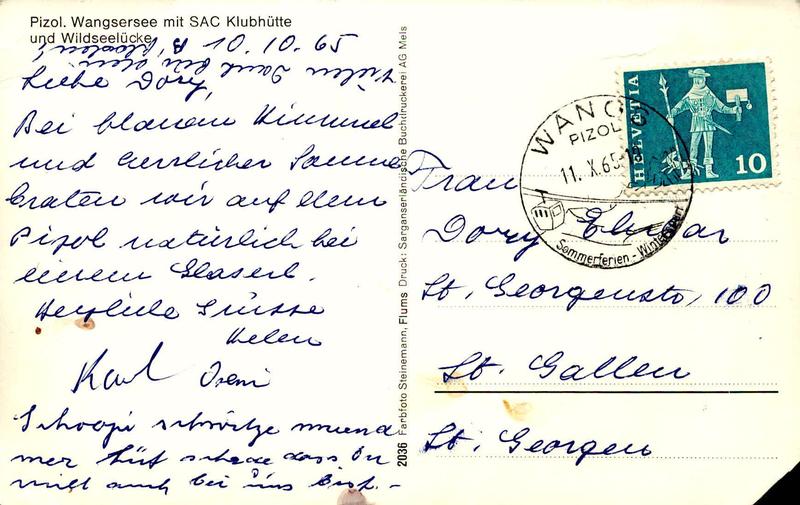 Pizol. Wangsersee mit SAC Klubhütte
und Wildseelücke
10.10.65
Vielen Dank für
Liebe Dory,
Bei blauem Himmel
und herrlicher Sonne
braten wir auf dem
Pizol natürlich bei
einem Glaserl.
Herzliche Grüsse
Helen
Karl
schade dass Du
nüt auch bei uns bist.-
2036 Farbfoto Steinemann, Flums Druck: Sarganserländische Buchdruckerei AG Mels
HELVETIA
10
WANGS
PIZOL
11.X.65
Sommerferien - Wintersport
Frau
Dory
St. Georgenstr, 100
St. Gallen
St. Georgen